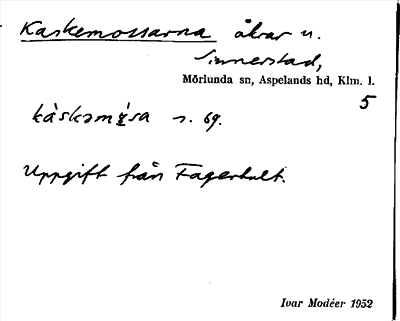 Kaskemossarna åkrar u.
Sinnerstad,
Mörlunda sn, Aspelands hd, Klm. l.
5
s. 69.
Uppgift från Fagerhult.
Ivar Modéer 1952